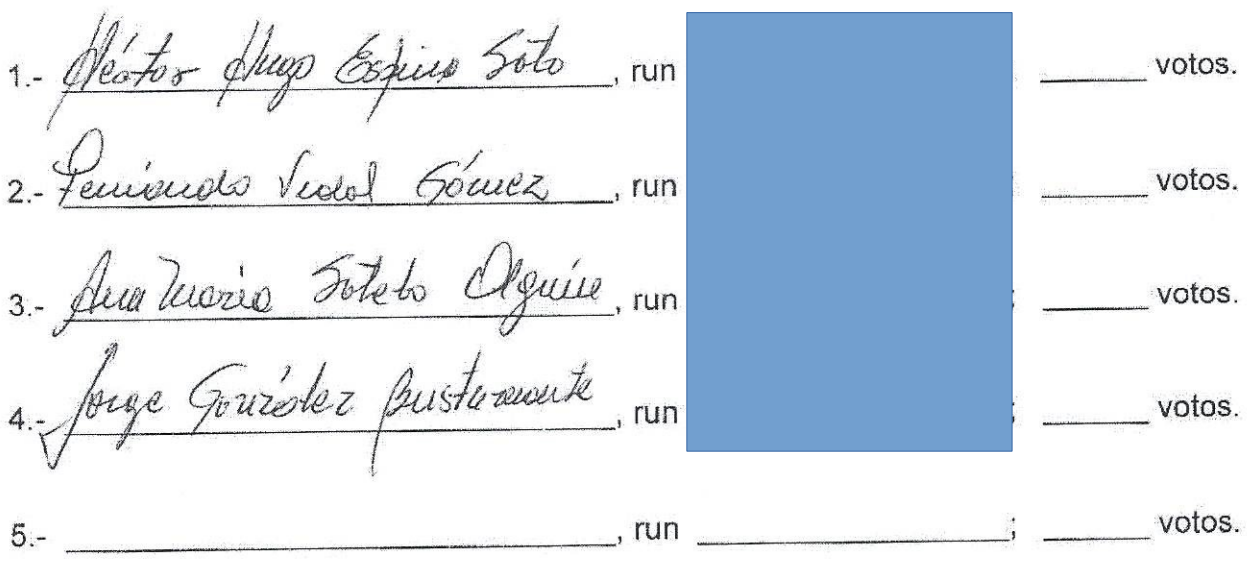 1.- Héctor Hugo Espina Soto, run ; _____ votos.
2.- Fernando Vidal Gómez, run ; _____ votos.
3.- Ana María Sotelo Olguín, run ; _____ votos.
4.- Jorge González Bustamante, run ; _____ votos.
5.- _____, run _____; _____ votos.